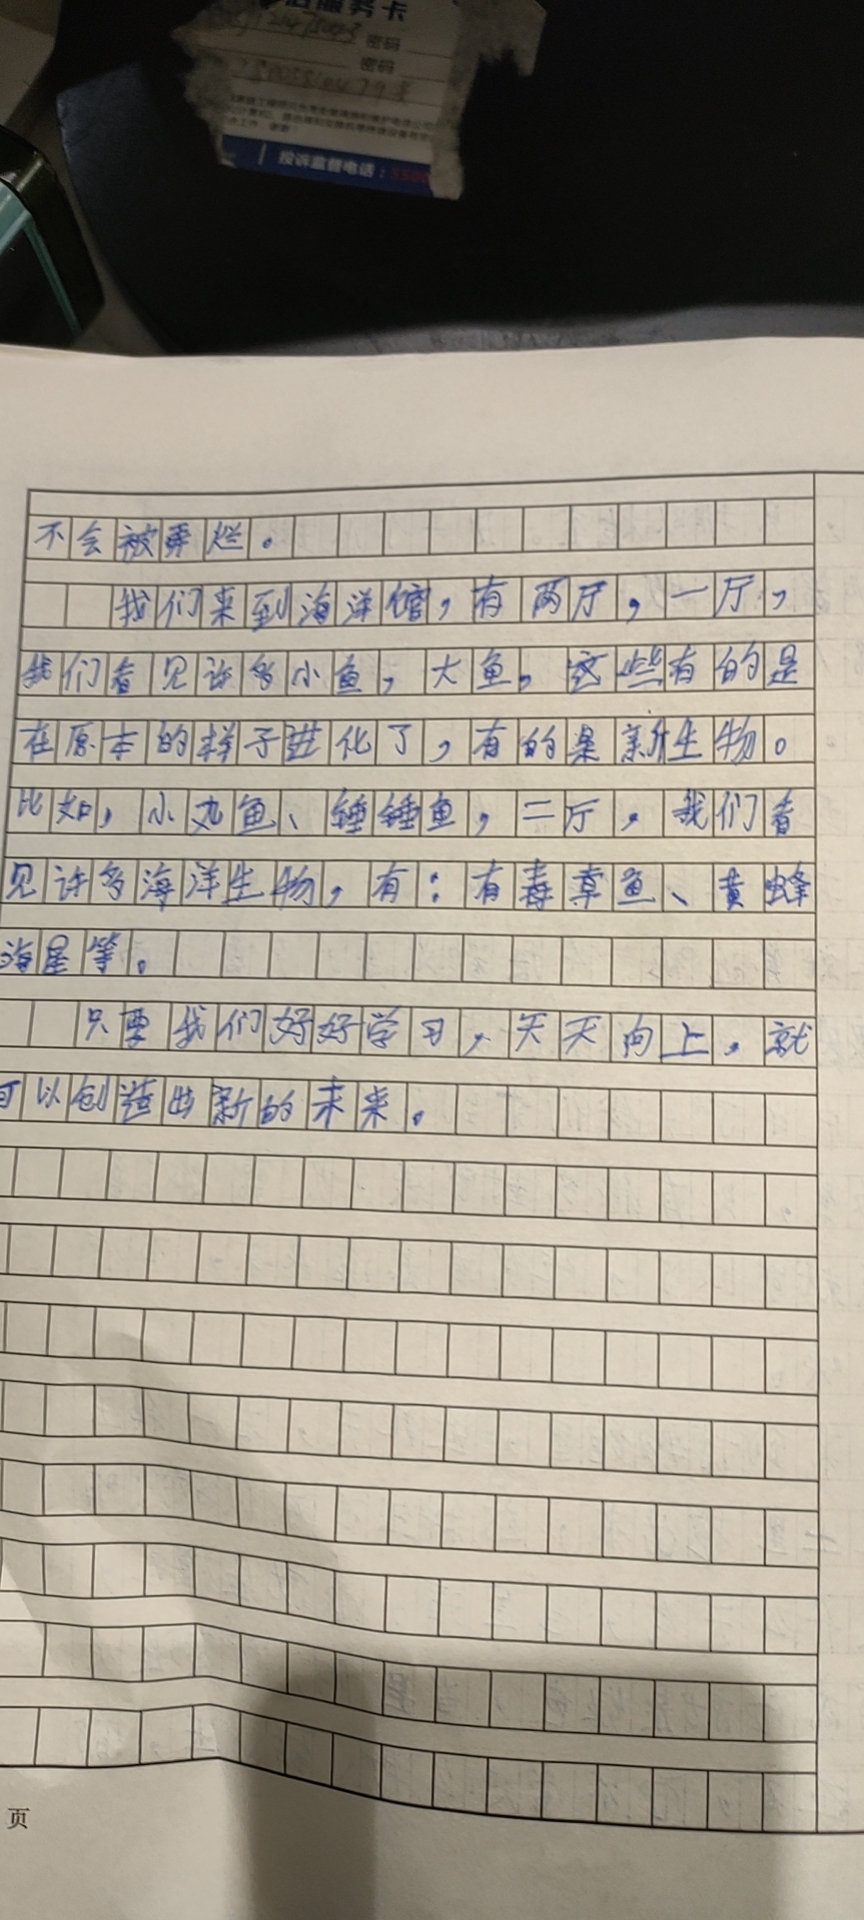 服务卡
密码
密码
投诉监督电话：
不会被弄烂。
我们来到海洋馆，有两厅，一厅，
我们看见许多小鱼，大鱼，这些有的是
在原本的样子进化了，有的是新生物。
比如，小丸鱼、锤锤鱼，二厅，我们看
见许多海洋生物，有：有毒草鱼、黄蜂
海星等。
只要我们好好学习，天天向上，就
可以创造出新的未来。
页